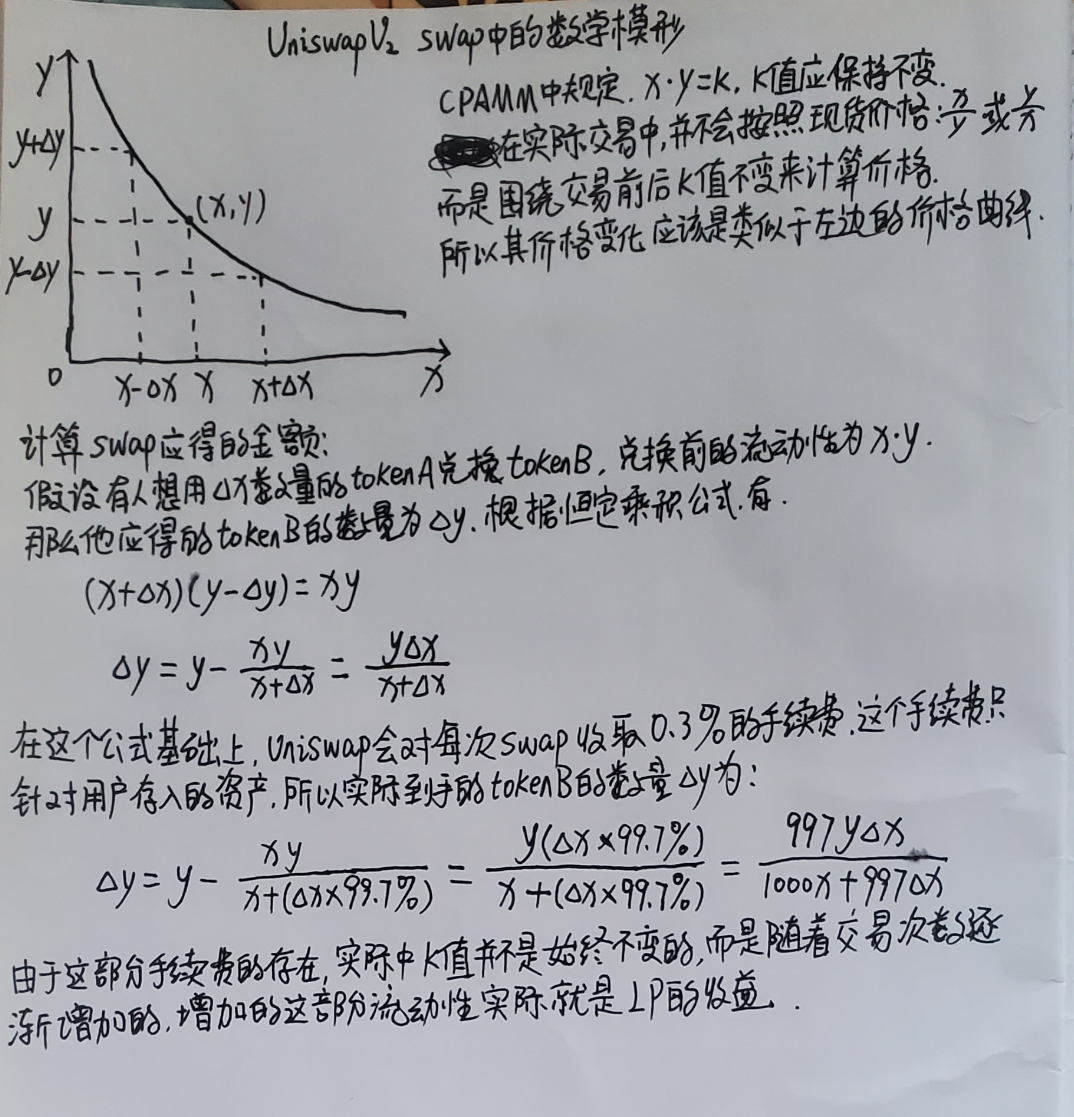 UniswapV₂ swap中的数学模形
CPAMM中规定. x·y=k, K值应保持不变.
在实际交易中,并不会按照现货价格: x/y 或 y/x
而是围绕交易前后K值不变来计算价格.
所以其价格变化应该是类似于左边的价格曲线.
y
y+Δy
y
(x,y)
y-Δy
0
x-Δx x x+Δx x
计算swap应得的金额:
假设有人想用Δx数量的tokenA兑换tokenB, 兑换前的流动性为x·y.
那么他应得的tokenB的数量为Δy. 根据恒定乘积公式.有.
(x+Δx)(y-Δy)=xy
Δy = y - xy/(x+Δx) = yΔx/(x+Δx)
在这个公式基础上, Uniswap会对每次swap收取0.3%的手续费.这个手续费只
针对用户存入的资产.所以实际到手的tokenB的数量Δy为:
Δy = y - xy/(x+(Δx×99.7%)) = y(Δx×99.7%)/(x+(Δx×99.7%)) = 997yΔx/(1000x+997Δx)
由于这部分手续费的存在, 实际中K值并不是始终不变的, 而是随着交易次数逐
渐增加的, 增加的这部分流动性实际就是LP的收益.